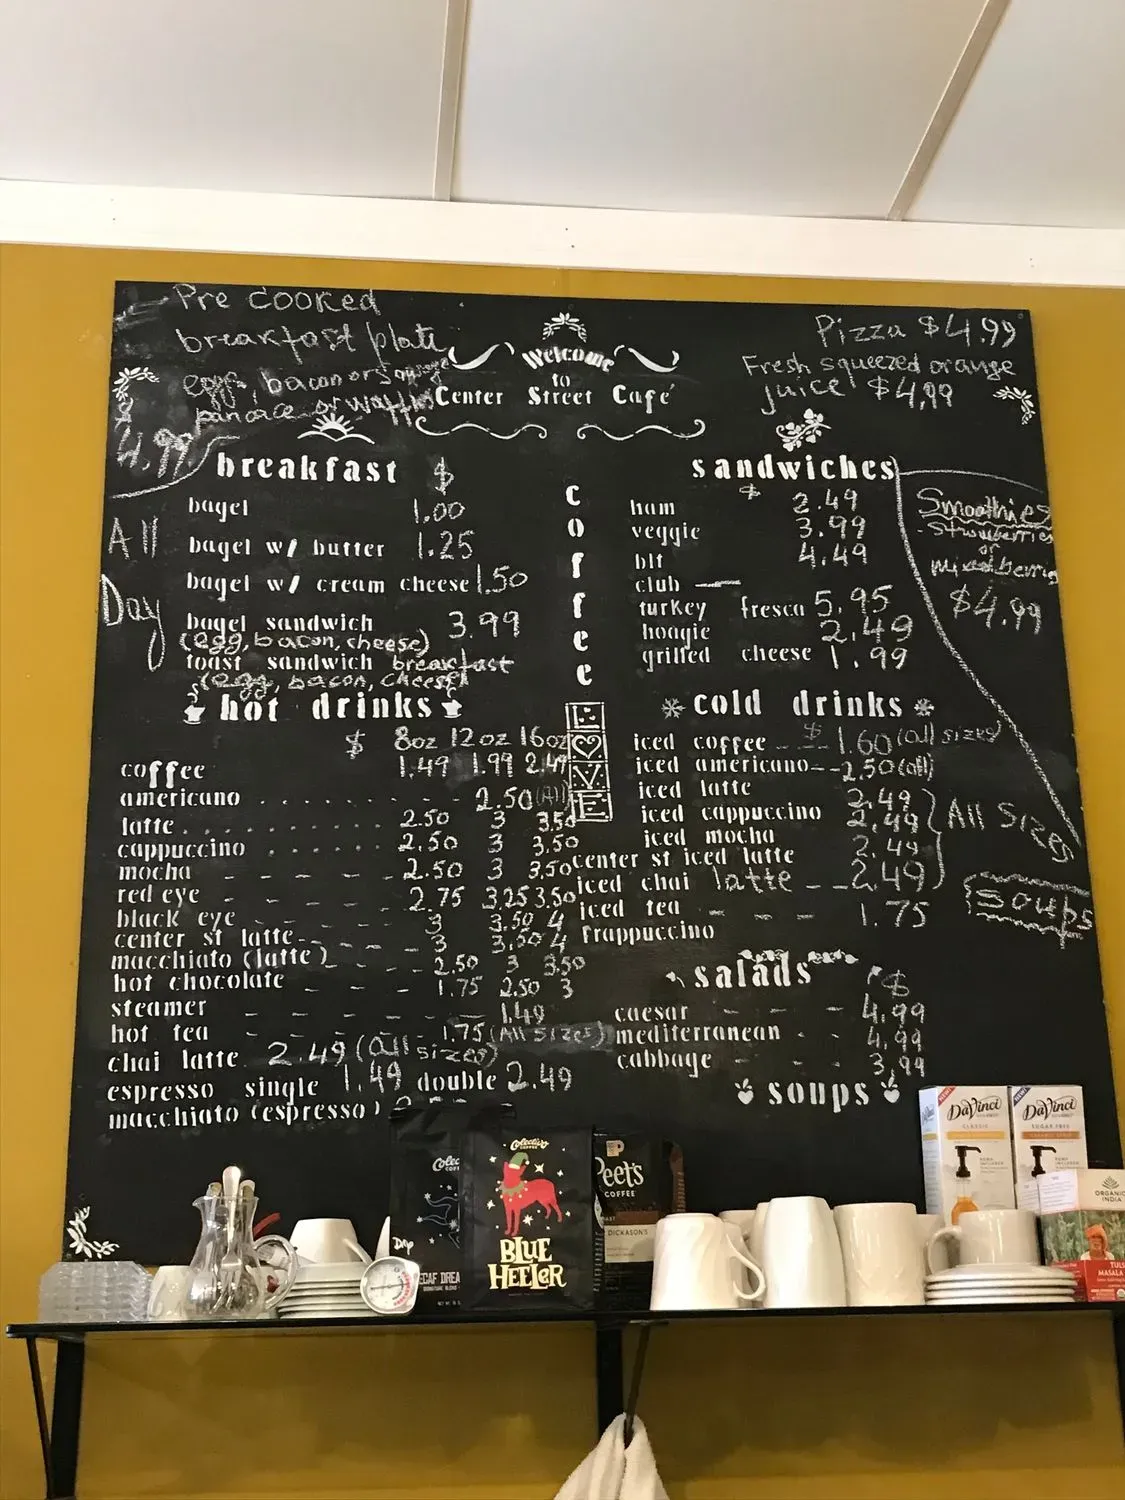 Pre cooked
breakfast plate
eggs, bacon or sausage
pancake or waffles
4.99
Welcome
to
Center Street Café
Pizza $4.99
Fresh squeezed orange
juice $4,99
breakfast $
All
Day
bagel 1.00
bagel w/ butter 1.25
bagel w/ cream cheese 1.50
bagel sandwich 3.99
(egg, bacon, cheese)
toast sandwich breakfast
(egg, bacon, cheese)
coffee
LOVE
sandwiches
$
ham 2.49
veggie 3.99
blt 4.49
club
turkey fresca 5.95
hoagie 2.49
grilled cheese 1.99
Smoothies
strawberries
or
mixed berries
$4.99
hot drinks
$ 8oz 12oz 16oz
coffee 1.49 1.99 2.49
americano . . . . . . - - - 2.50 (All)
latte. . . . . . . . . . 2.50 3 3.50
cappuccino . . . . . . 2.50 3 3.50
mocha - - - - - - 2.50 3 3.50
red eye - - - - - 2.75 3.25 3.50
black eye - - - - 3 3.50 4
center st latte - - - - 3 3.50 4
macchiato (latte) - - - 2.50 3 3.50
hot chocolate - - - - 1.75 2.50 3
steamer - - - - - - - 1.49
hot tea - - - - - 1.75 (All Sizes)
chai latte 2.49 (all sizes)
espresso single 1.49 double 2.49
macchiato (espresso)
cold drinks
iced coffee - - - $ 1.60 (all sizes)
iced americano - - 2.50 (all)
iced latte 2.49
iced cappuccino 2.49
iced mocha 2.49
All Sizes
center st iced latte
iced chai latte - - 2.49
iced tea - - - 1.75
frappuccino
Soups
salads $
caesar - - - - - 4.99
mediterranean - - 4.99
cabbage - - - 3.99
soups
Colectivo
COFFEE
BLUE
HEELER
Peet's
COFFEE
DICKASON'S
DaVinci
CLASSIC
DaVinci
SUGAR FREE
ORGANIC
INDIA
TULSI
MASALA
Drip